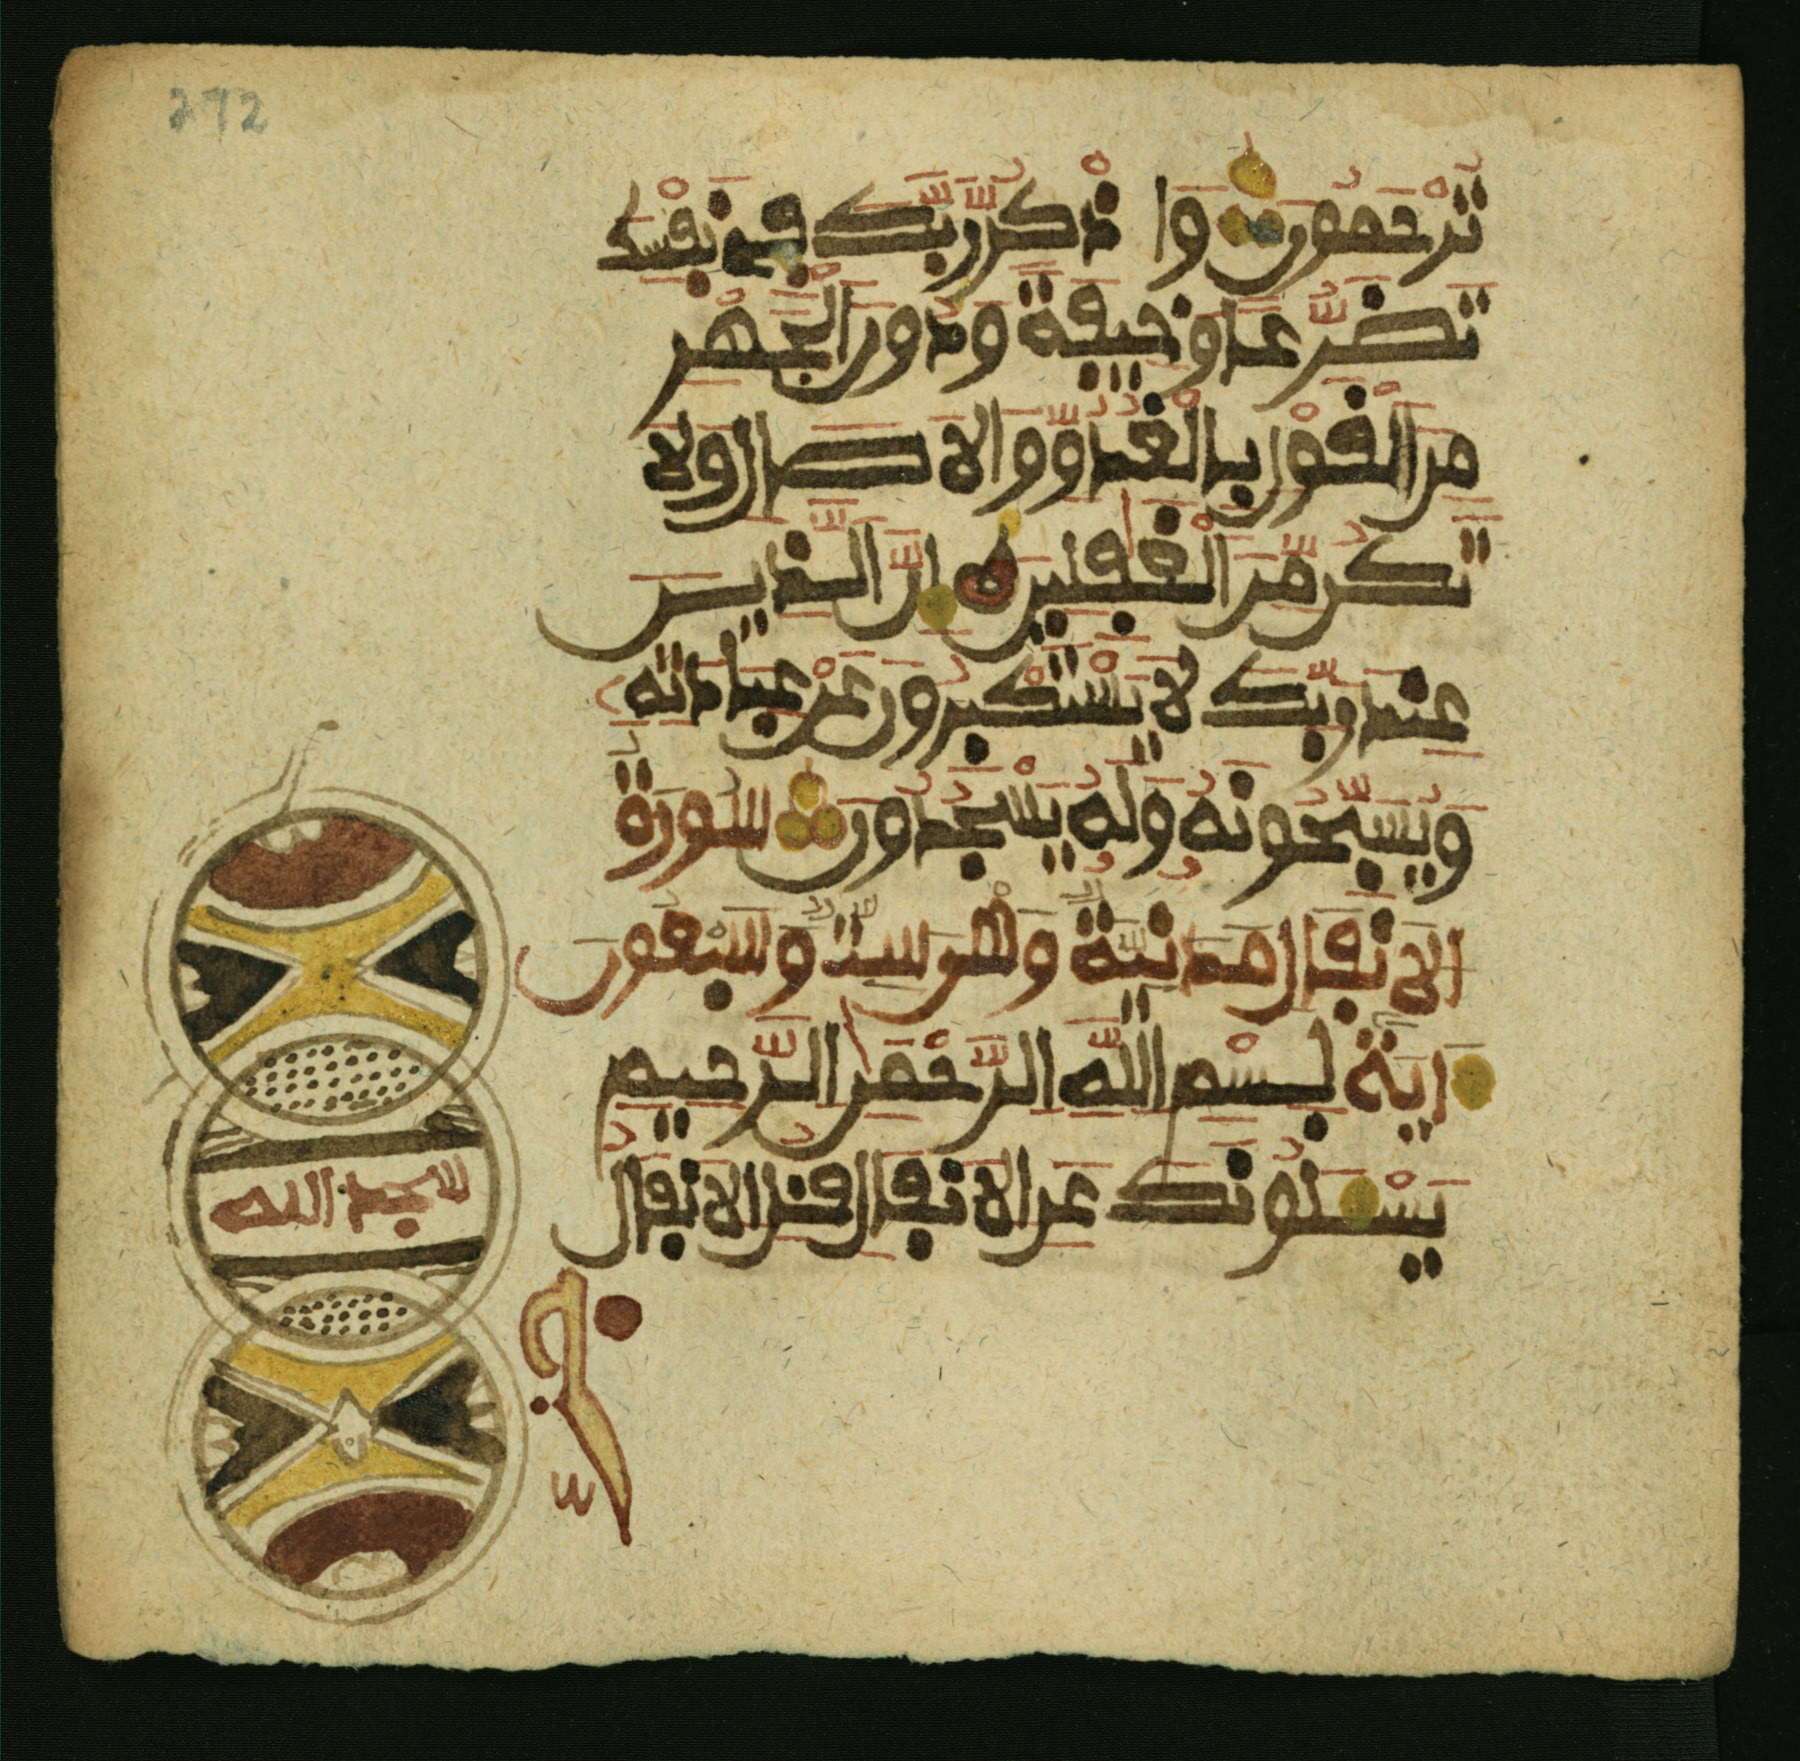 272
تُرْحَمُونَ وَاذْكُر رَّبَّكَ فِي نَفْسِكَ
تَضَرُّعًا وَخِيفَةً وَدُونَ الْجَهْرِ
مِنَ الْقَوْلِ بِالْغُدُوِّ وَالْاَصَالِ وَلَا
تَكُن مِّنَ الْغَٰفِلِينَ اِنَّ الَّذِينَ
عِندَ رَبِّكَ لَا يَسْتَكْبِرُونَ عَنْ عِبَادَتِهِ
وَيُسَبِّحُونَهُ وَلَهُ يَسْجُدُونَ سُورَةُ
الَانفَالِ مَدَنِيَّةٌ وَهْىَ سِتٌّ وَسَبْعُونَ
اَيَةً بِسْمِ اللَّهِ الرَّحْمَٰنِ الرَّحِيمِ
يَسْـَٔلُونَكَ عَنِ الَانفَالِ قُلِ الَانفَالُ
سجد الله
حزب